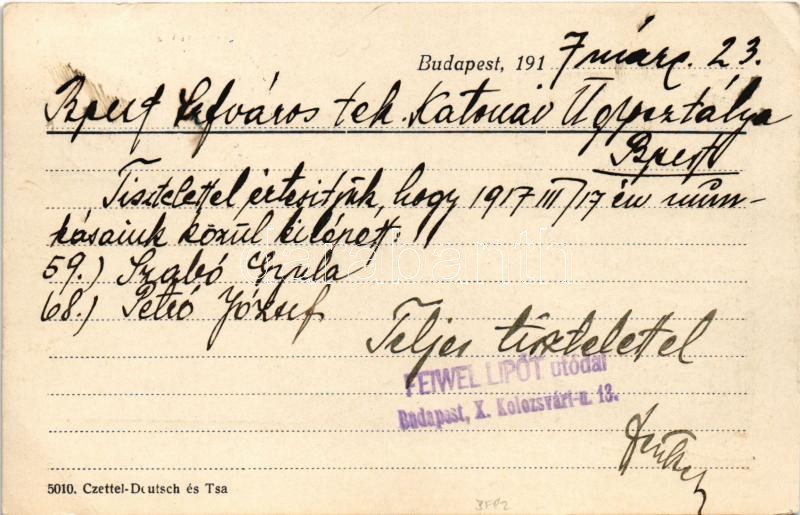 Budapest, 1917 márc. 23.
Bpest Szfváros tek. Katonai Ügyosztálya
Bpest
Tisztelettel értesitjük, hogy 1917 III/17 én mun-
kásaink közül kilépett:
59.) Szabó Gyula
68.) Petró József
Teljes tisztelettel
FEIWEL LIPÓT utódai
Budapest, X. Kolozsvári-u. 13.
5010. Czettel-Deutsch és Tsa
darabanth